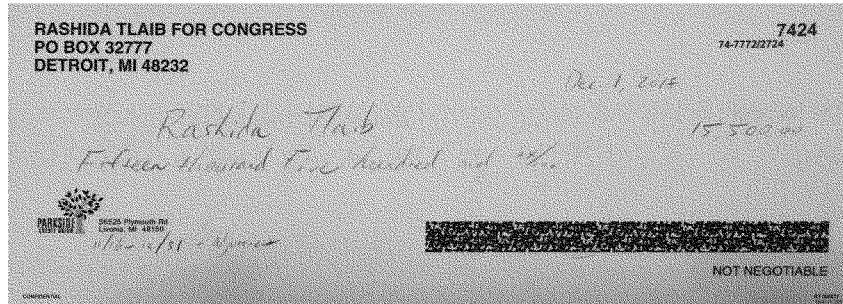 RASHIDA TLAIB FOR CONGRESS
PO BOX 32777
DETROIT, MI 48232
7424
74-7772/2724
Dec 1, 2018
Rashida Tlaib
15 500.00
Fifteen thousand Five hundred and /00
PARKSIDE
CREDIT UNION
36525 Plymouth Rd
Livonia, MI 48150
NOT NEGOTIABLE
CONFIDENTIAL